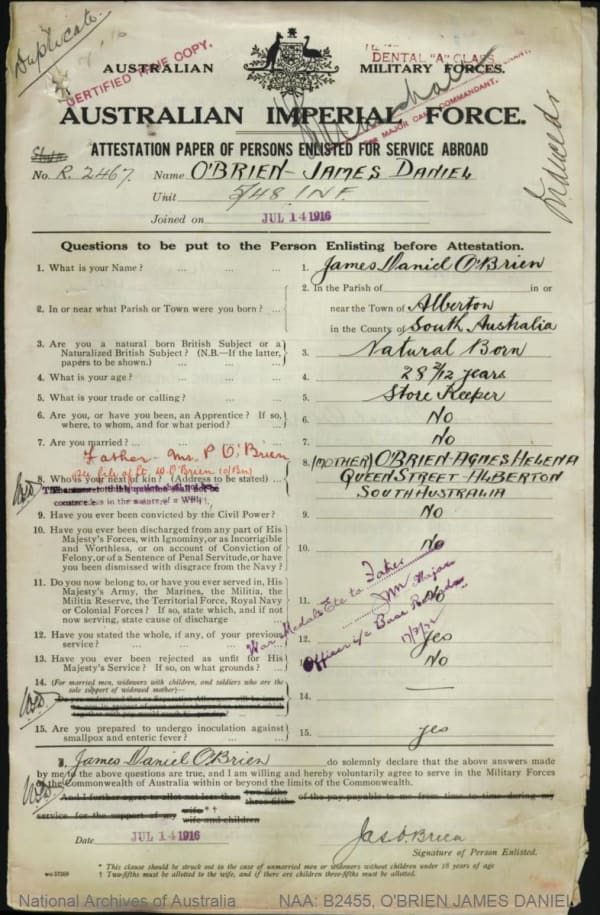 Duplicate.
CERTIFIED TRUE COPY.
DENTAL "A" CLASS
AUSTRALIAN MILITARY FORCES.
MAJOR CAMP COMMANDANT.
AUSTRALIAN IMPERIAL FORCE.
ATTESTATION PAPER OF PERSONS ENLISTED FOR SERVICE ABROAD
No. R. 2467. Name O'BRIEN - JAMES DANIEL
Unit 5/48 INF.
Joined on JUL 14 1916
Questions to be put to the Person Enlisting before Attestation.
1. What is your Name? ... ... ... 1. James Daniel O'Brien
2. In or near what Parish or Town were you born? ... 2. In the Parish of in or
near the Town of Alberton
in the County of South Australia
3. Are you a natural born British Subject or a
Naturalized British Subject? (N.B.—If the latter,
papers to be shown.) ... ... 3. Natural Born
4. What is your age? ... ... ... 4. 28 2/12 years
5. What is your trade or calling? ... ... 5. Store Keeper
6. Are you, or have you been, an Apprentice? If so,
where, to whom, and for what period? ... 6. No
7. Are you married? ... ... ... 7. No
Father - Mr. P O'Brien
see file of Lt. W. O'Brien
8. Who is your next of kin? (Address to be stated) ... 8. (MOTHER) O'BRIEN - AGNES HELENA
QUEEN STREET - ALBERTON
SOUTH AUSTRALIA
9. Have you ever been convicted by the Civil Power? 9. No
10. Have you ever been discharged from any part of His
Majesty's Forces, with Ignominy, or as Incorrigible
and Worthless, or on account of Conviction of
Felony, or of a Sentence of Penal Servitude, or have
you been dismissed with disgrace from the Navy? 10. No
11. Do you now belong to, or have you ever served in, His
Majesty's Army, the Marines, the Militia, the
Militia Reserve, the Territorial Force, Royal Navy
or Colonial Forces? If so, state which, and if not
now serving, state cause of discharge ... 11. No
War Medals Etc to Father
Major
Officer i/c Base Records
12. Have you stated the whole, if any, of your previous
service? ... ... ... 12. Yes
13. Have you ever been rejected as unfit for His
Majesty's Service? If so, on what grounds? ... No
14. (For married men, widowers with children, and soldiers who are the
sole support of widowed mother)— 14. —
15. Are you prepared to undergo inoculation against
smallpox and enteric fever? ... ... 15. yes
I, James Daniel O'Brien do solemnly declare that the above answers made
by me to the above questions are true, and I am willing and hereby voluntarily agree to serve in the Military Forces
of the Commonwealth of Australia within or beyond the limits of the Commonwealth.
And I further agree to allot not less than two-fifths three-fifths of the pay payable to me from time to time during my
service for the support of my wife*† wife and children
Date JUL 14 1916 Jas O'Brien
Signature of Person Enlisted.
* This clause should be struck out in the case of unmarried men or widowers without children under 18 years of age
† Two-fifths must be allotted to the wife, and if there are children three-fifths must be allotted.
National Archives of Australia NAA: B2455, O'BRIEN JAMES DANIEL